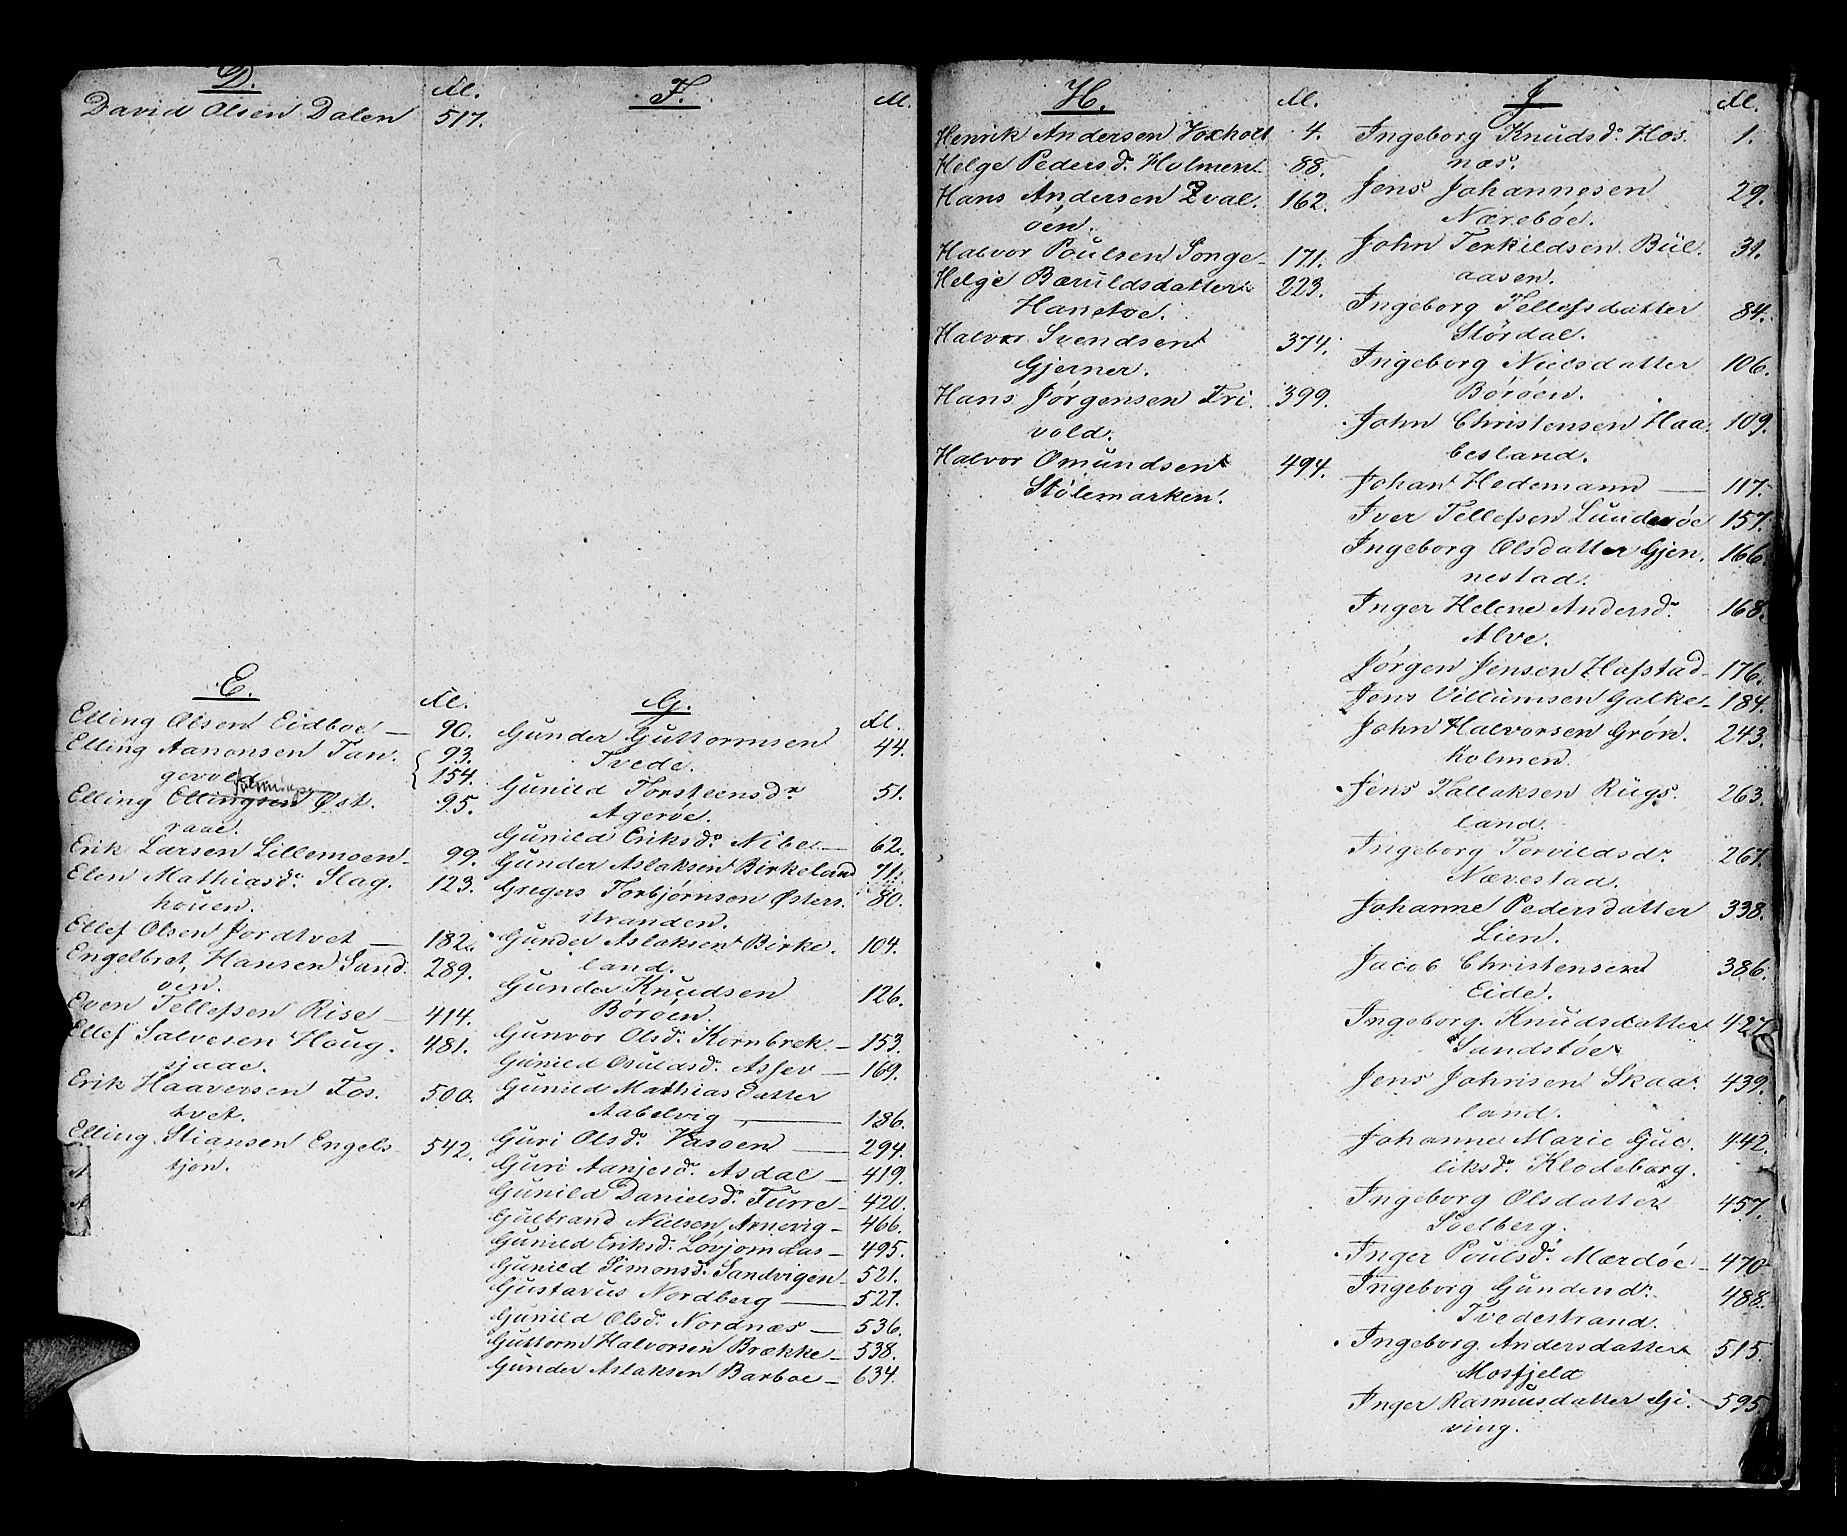 D.
David Olsen Dalen 517.
E.
Elling Olsen Eidboe — 90.
Elling Aanonsen Tan- 93.
gevold 154.
Elling Ellingsen Øst- 95.
raae.
Erik Larsen Lillemoen 99.
Elen Mathiasd. Slag- 123.
houen.
Ellef Olsen Jordtvet — 182.
Engelbret Hansen Sand- 289.
øen.
Even Tellefsen Rise — 414.
Ellef Salvesen Houg- 481.
sjaae.
Erik Haaversen Fos- 500.
tvet.
Elling Stiansen Engels- 542.
tjen.
F.
G.
Gunder Guttormsen 44.
Tvede.
Gunild Torsteensdr 51.
Agerøe.
Gunild Eriksd. Nibe — 62.
Gunder Aslaksen Birkeland 71.
Gregers Torbjørnsen Østers- 80.
stranden.
Gunder Aslaksen Birke- 104.
land.
Gunder Knudsen 126.
Børøen.
Gunvor Olsd. Kornbrek — 153.
Gunild Osuldsd. Assev — 169.
Gunild Mathiasdatter
Aabelvig — 186.
Guri Olsd. Vasøen — 294.
Guri Aanjesd. Asdal — 419.
Gunild Danielsd. Furre — 420.
Gulbrand Nielsen Arnevig — 466.
Gunild Eriksd. Løvjomdas — 495.
Gunild Simonsd. Sandvigen — 521.
Gustavus Nordberg — 527.
Gunild Olsd. Nordnæs — 536.
Guttorm Halvorsen Brække — 538.
Gunder Aslaksen Barboe — 634.
H.
Henrik Andersen Voxholt 4.
Helge Pedersd. Holmen 88.
Hans Andersen Qval- 162.
øen.
Halvor Poulsen Songe — 171.
Helge Bæruldsdatter 223.
Hanetoe.
Halvor Svendsen 374.
Gjerner.
Hans Jørgensen Fri- 399.
vold.
Halvor Omundsen 494.
Stølemarken.
J
Ingeborg Knudsd. Hos- 1.
næs.
Jens Johannesen 29.
Nærebøe.
John Terkildsen Bül- 31.
aasen.
Ingeborg Tellefsdatter 84.
Størdal.
Ingeborg Nielsdatter 106.
Børøen.
John Christensen Haa- 109.
besland.
Johan Hedemann — 117.
Iver Tellefsen Lunderøe 157.
Ingeborg Olsdatter Gjen- 166.
nestad.
Inger Helene Andersd. 168.
Alve.
Jørgen Jensen Hafstad — 176.
Jens Villumsen Galke — 184.
John Halvorsen Grøn- 243.
holmen.
Jens Tallaksen Rugs- 263.
land.
Ingeborg Torvildsdr 267.
Nævestad.
Johanne Pedersdatter 338.
Lien.
Jacob Christensen 386.
Eide.
Ingeborg Knudsdatter 427.
Sandstøe
Jens Johnsen Skaa- 439.
land.
Johanne Marie Gul- 442.
liksd. Klodeborg.
Ingeborg Olsdatter 457.
Solberg.
Inger Poulsd. Mærdøe — 470.
Ingeborg Gundersdr 488.
Tvedestrand.
Ingeborg Andersdatter 515.
Mosfjeld
Inger Rasmusdatter Gi- 595.
ving.